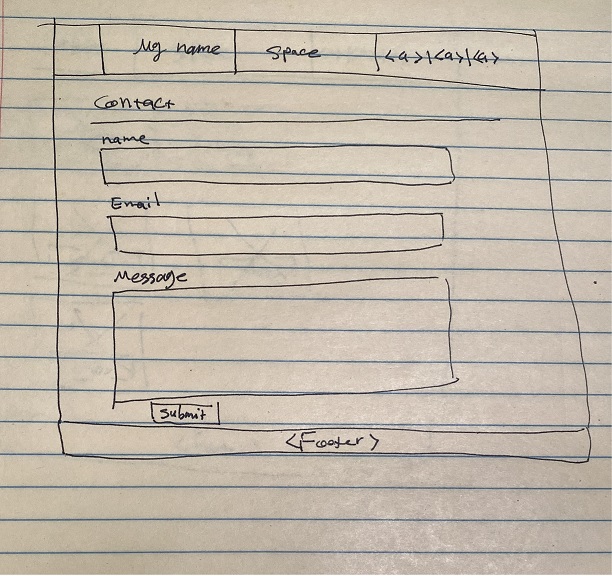 My name Space <a>|<a>|<a>
Contact
name
Email
Message
Submit
<Footer>